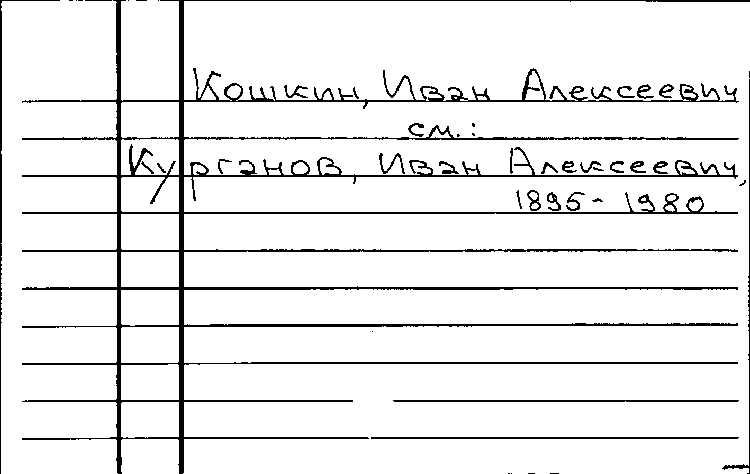 Кошкин, Иван Алексеевич
см.:
Курганов, Иван Алексеевич,
1895-1980